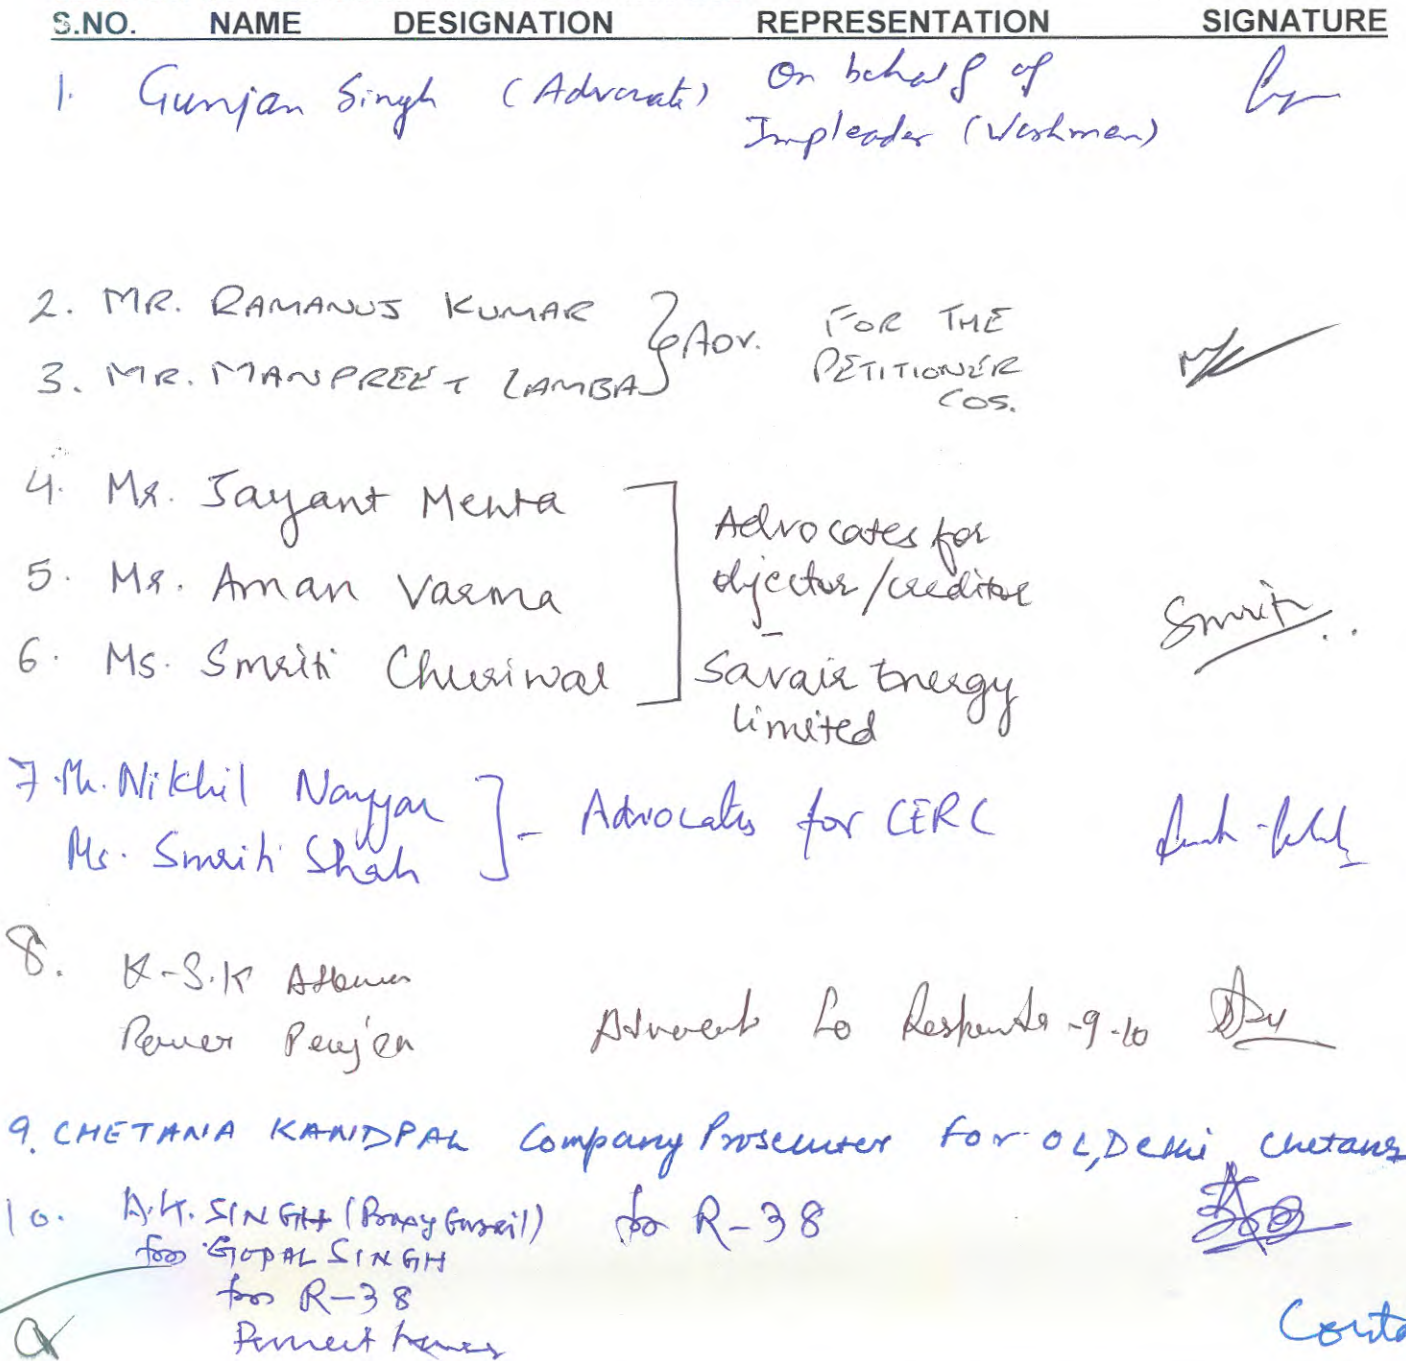 S.NO. NAME DESIGNATION REPRESENTATION SIGNATURE
1. Gunjan Singh (Advocate) On behalf of
Impleader (Workmen)
2. MR. RAMANUJ KUMAR
3. MR. MANPREET LAMBA
Adv. FOR THE
PETITIONER
COS.
4. Mr. Jayant Mehta
5. Mr. Aman Varma
6. Ms. Smriti Churiwal
Advocates for
objector/creditor
-
Savair Energy
limited
Smriti
7. Mr. Nikhil Nayyar
Ms. Smriti Shah
- Advocates for CERC
8. K.S.K
Power 9-10
9. CHETANA KANDPAL Company Prosecutor For OL, Delhi Chetana
10. A.K. SINGH (Proxy Counsil) for R-38
for GOPAL SINGH
for R-38